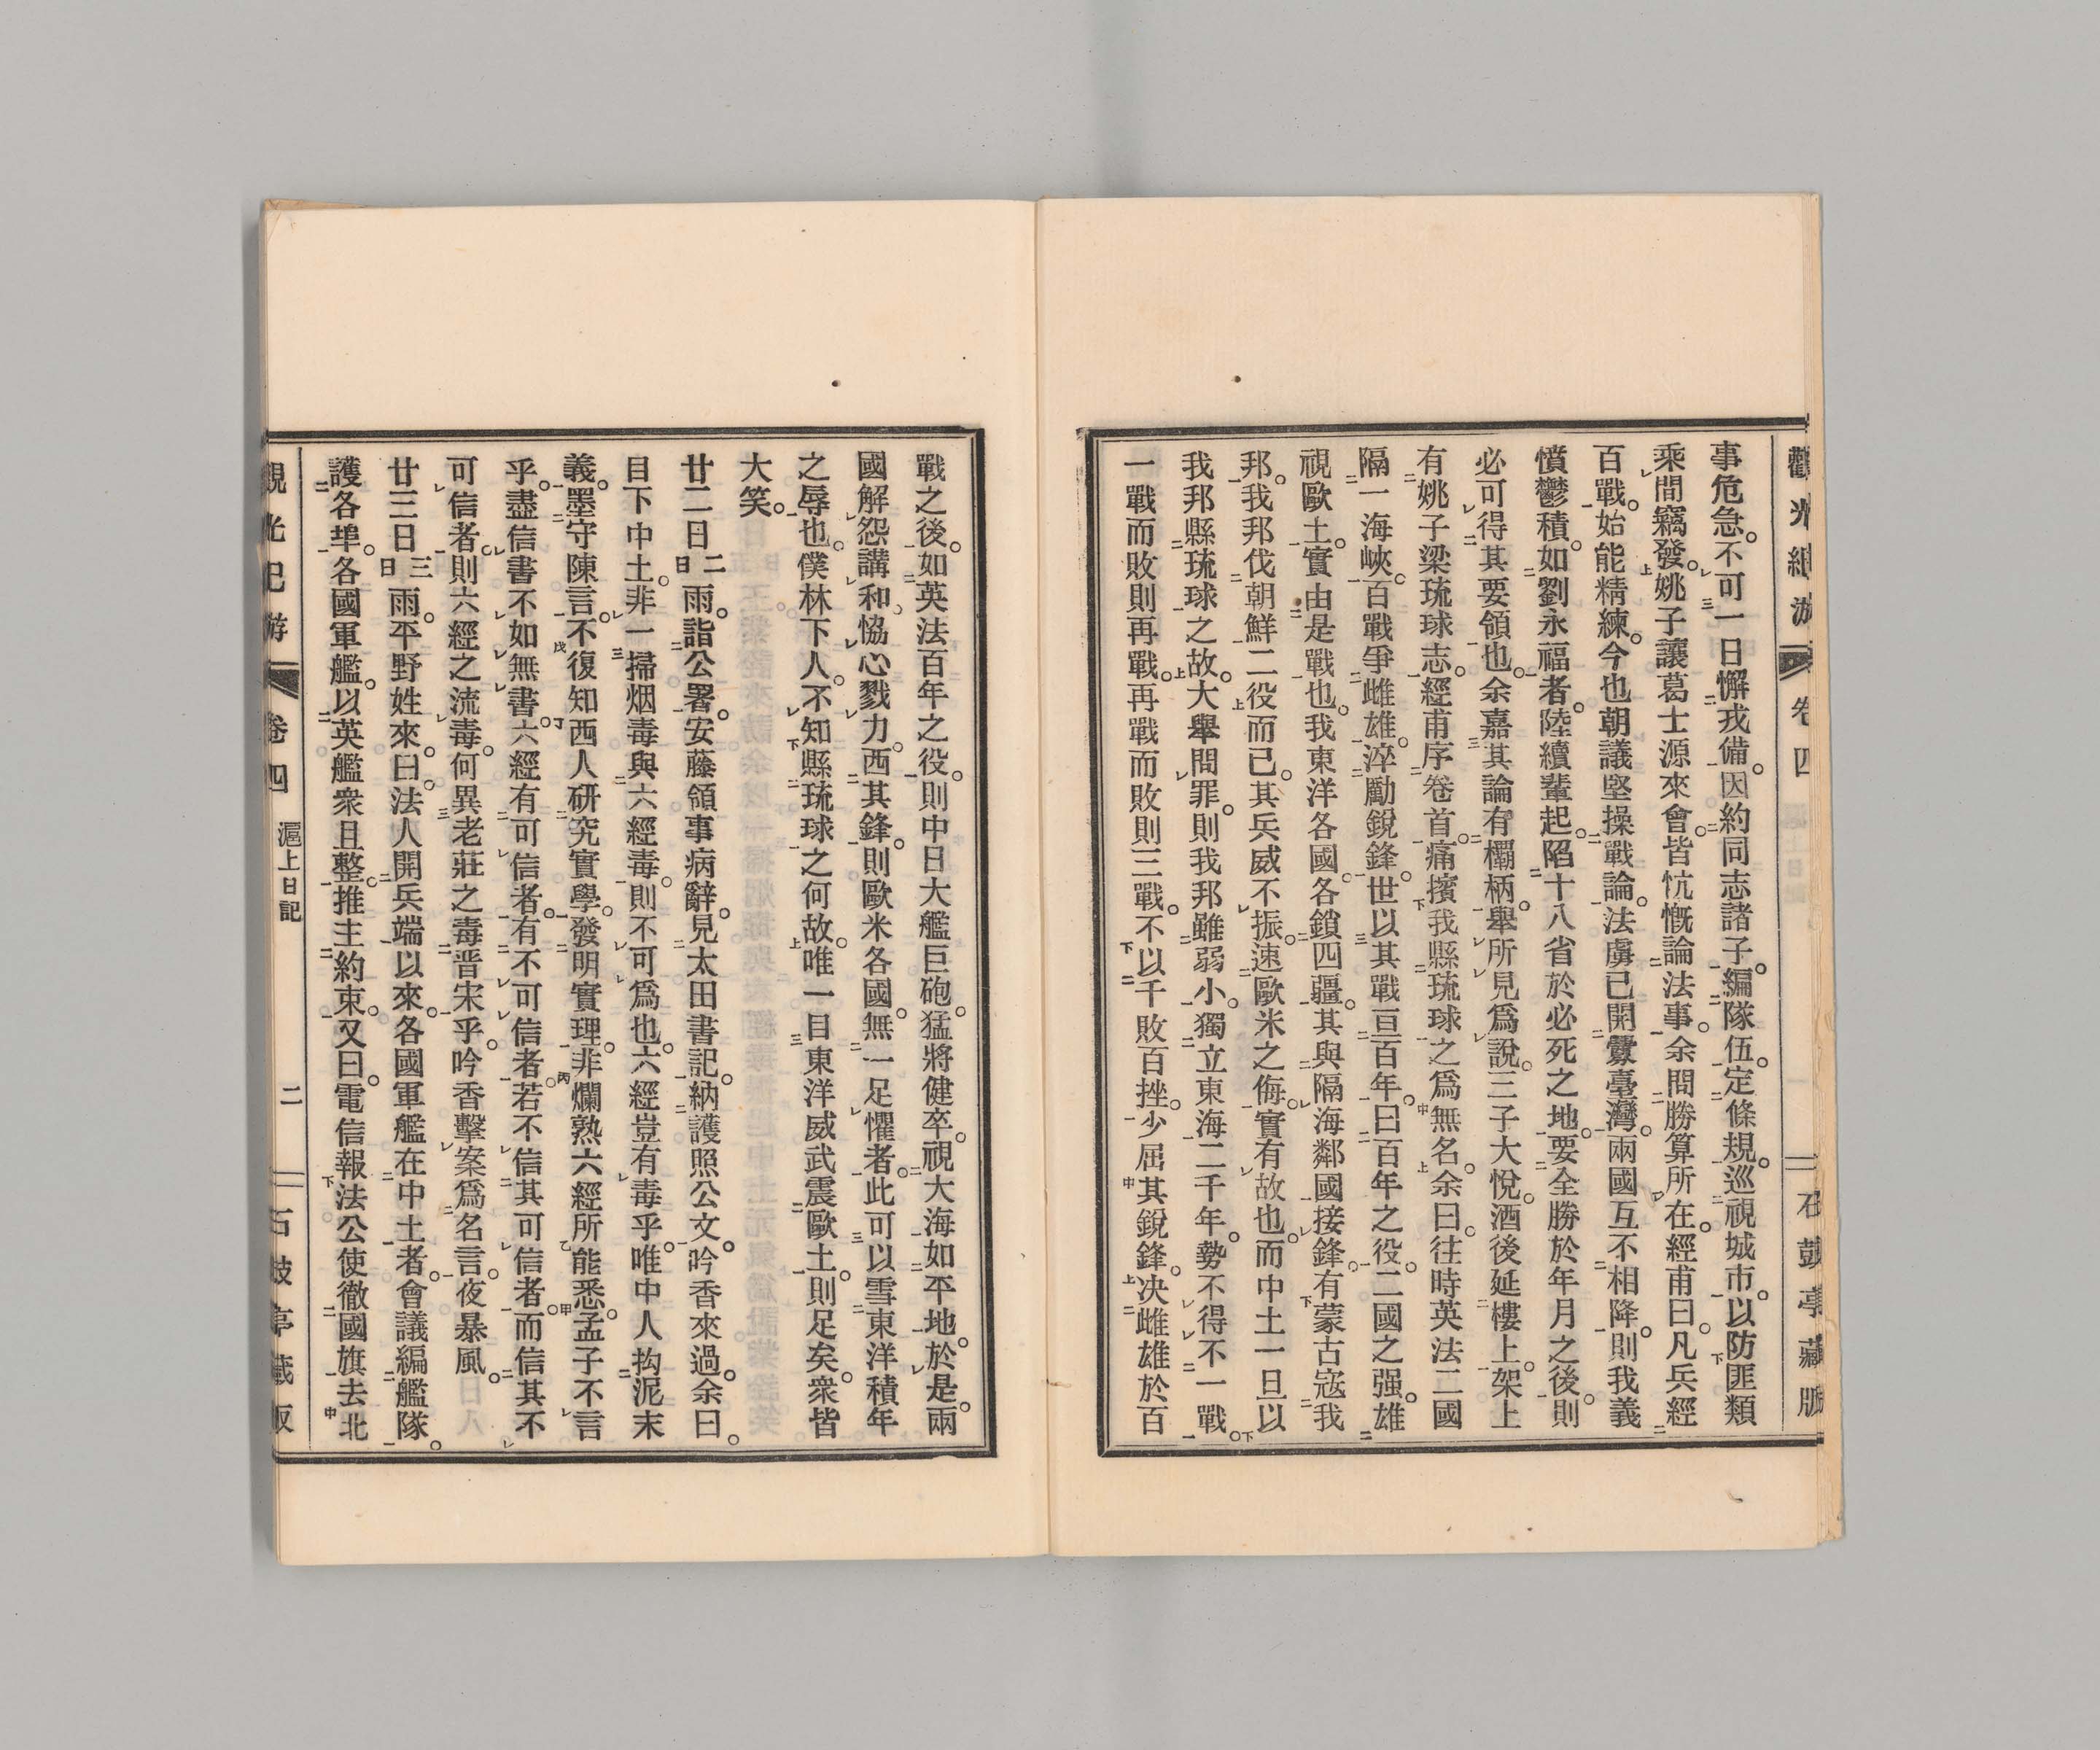 觀光紀游 卷四 石鼓亭藏版
事危急。不可一日懈戎備。因約同志諸子。編隊伍。定條規。巡視城市。以防匪類
乘間竊發。姚子讓葛士源來會。皆忼慨論法事。余問勝算所在。經甫曰。凡兵經
百戰。始能精練。今也朝議堅操戰論。法虜已開釁臺灣。兩國互不相降。則我義
憤鬱積。如劉永福者。陸續輩起。陷十八省於必死之地。要全勝於年月之後。則
必可得其要領也。余嘉其論有欛柄。舉所見爲說。三子大悅。酒後延樓上。架上
有姚子梁琉球志。經甫序卷首。痛擯我縣琉球之爲無名。余曰。往時英法二國
隔一海峽。百戰爭雌雄。淬勵銳鋒。世以其戰亘百年。曰百年之役。二國之强。雄
視歐土。實由是戰也。我東洋各國。各鎖四疆。其與隔海鄰國接鋒。有蒙古寇我
邦。我邦伐朝鮮二役而已。其兵威不振。速歐米之侮。實有故也。而中土一旦以
我邦縣琉球之故。大舉問罪。則我邦雖弱小。獨立東海二千年。勢不得不一戰。
一戰而敗則再戰。再戰而敗則三戰。不以千敗百挫。少屈其銳鋒。决雌雄於百
戰之後。如英法百年之役。則中日大艦巨砲。猛將健卒。視大海如平地。於是。兩
國解怨講和。恊心戮力。西其鋒。則歐米各國。無一足懼者。此可以雪東洋積年
之辱也。僕林下人。不知縣琉球之何故。唯一日東洋威武震歐土。則足矣。衆皆
大笑。
廿二日二日雨。詣公署。安藤領事病辭。見太田書記。納護照公文。吟香來過。余曰。
目下中土。非一掃烟毒與六經毒。則不可爲也。六經豈有毒乎。唯中人拘泥末
義。墨守陳言。不復知西人研究實學。發明實理。非爛熟六經所能悉。孟子不言
乎。盡信書不如無書。六經有可信者。有不可信者。若不信其可信者。而信其不
可信者。則六經之流毒。何異老莊之毒晋宋乎。吟香擊案爲名言。夜暴風。
廿三日三日雨。平野姓來。曰。法人開兵端以來。各國軍艦在中土者。會議編艦隊。
護各埠。各國軍艦。以英艦衆且整。推主約束。又曰。電信報法公使徹國旗去北
觀光紀游 卷四 滬上日記 二 石鼓亭藏版